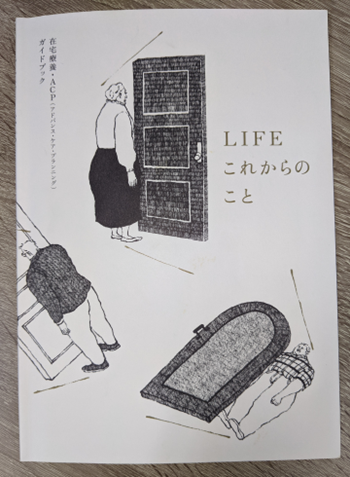 在宅療養・ACP(アドバンス・ケア・プランニング)
ガイドブック
LIFE
これからの
こと